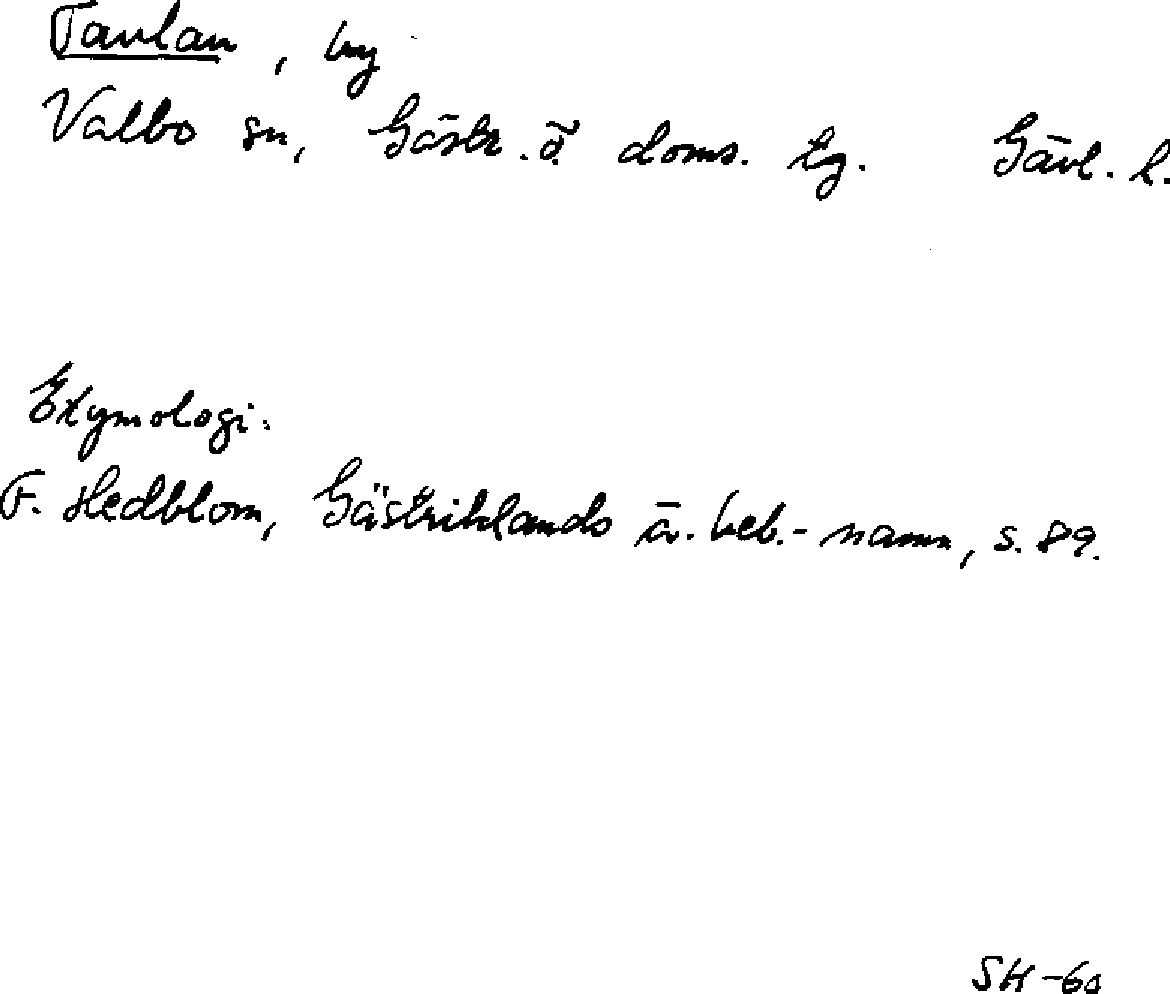 Tavlan, by
Valbo sn, Gästr. ö. doms. tg. Gävl. l.
Etymologi.
F. Hedblom, Gästriklands ä. beb.-namn, s. 89.
SH-60